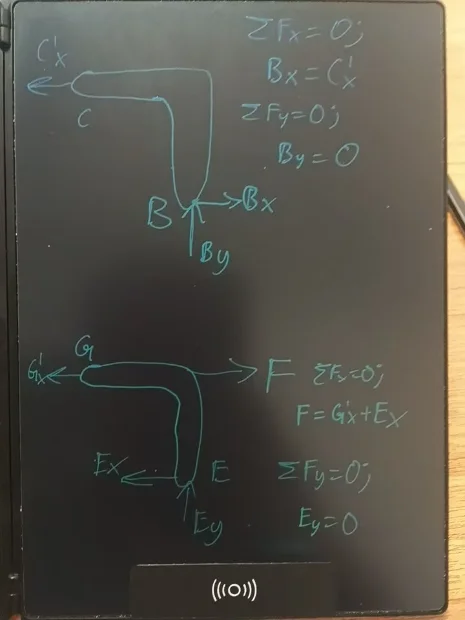 ΣFx=0;
C'x
Bx=C'x
C
ΣFy=0;
By=0
B
Bx
By
G
G'x
F
ΣFx=0;
F=G'x+Ex
Ex
E
ΣFy=0;
Ey
Ey=0